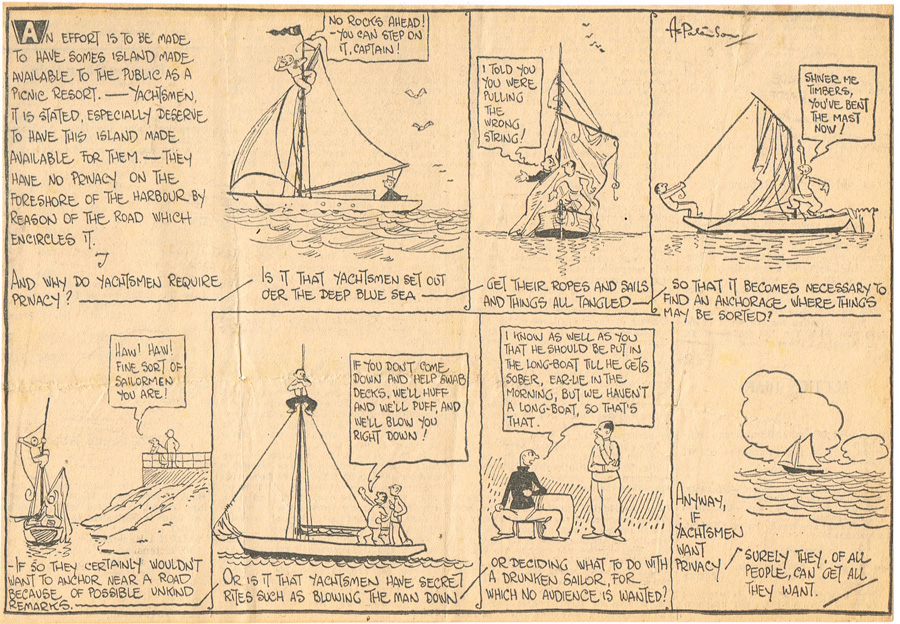 AN EFFORT IS TO BE MADE
TO HAVE SOMES ISLAND MADE
AVAILABLE TO THE PUBLIC AS A
PICNIC RESORT. — YACHTSMEN,
IT IS STATED, ESPECIALLY DESERVE
TO HAVE THIS ISLAND MADE
AVAILABLE FOR THEM — THEY
HAVE NO PRIVACY ON THE
FORESHORE OF THE HARBOUR BY
REASON OF THE ROAD WHICH
ENCIRCLES IT.
AND WHY DO YACHTSMEN REQUIRE
PRIVACY? —
NO ROCKS AHEAD!
- YOU CAN STEP ON
IT, CAPTAIN!
IS IT THAT YACHTSMEN SET OUT
O'ER THE DEEP BLUE SEA —
I TOLD YOU
YOU WERE
PULLING
THE
WRONG
STRING!
GET THEIR ROPES AND SAILS
AND THINGS ALL TANGLED —
SHIVER ME
TIMBERS,
YOU'VE BENT
THE MAST
NOW!
SO THAT IT BECOMES NECESSARY TO
FIND AN ANCHORAGE WHERE THINGS
MAY BE SORTED? —
HAW! HAW!
FINE SORT OF
SAILORMEN
YOU ARE!
- IF SO THEY CERTAINLY WOULDN'T
WANT TO ANCHOR NEAR A ROAD
BECAUSE OF POSSIBLE UNKIND
REMARKS. —
IF YOU DON'T COME
DOWN AND HELP SWAB
DECKS, WE'LL HUFF
AND WE'LL PUFF, AND
WE'LL BLOW YOU
RIGHT DOWN!
OR IS IT THAT YACHTSMEN HAVE SECRET
RITES SUCH AS BLOWING THE MAN DOWN —
I KNOW AS WELL AS YOU
THAT HE SHOULD BE PUT IN
THE LONG-BOAT TILL HE GETS
SOBER, EAR-LIE IN THE
MORNING, BUT WE HAVEN'T
A LONG-BOAT, SO THAT'S
THAT.
OR DECIDING WHAT TO DO WITH
A DRUNKEN SAILOR, FOR
WHICH NO AUDIENCE IS WANTED?
ANYWAY,
IF
YACHTSMEN
WANT
PRIVACY
SURELY THEY, OF ALL
PEOPLE, CAN GET ALL
THEY WANT.